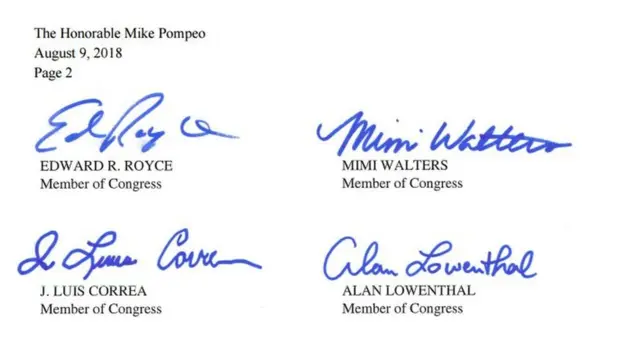 The Honorable Mike Pompeo
August 9, 2018
Page 2
Ed Royce
Mimi Walters
EDWARD R. ROYCE
MIMI WALTERS
Member of Congress
Member of Congress
J. Luis Correa
Alan Lowenthal
J. LUIS CORREA
ALAN LOWENTHAL
Member of Congress
Member of Congress